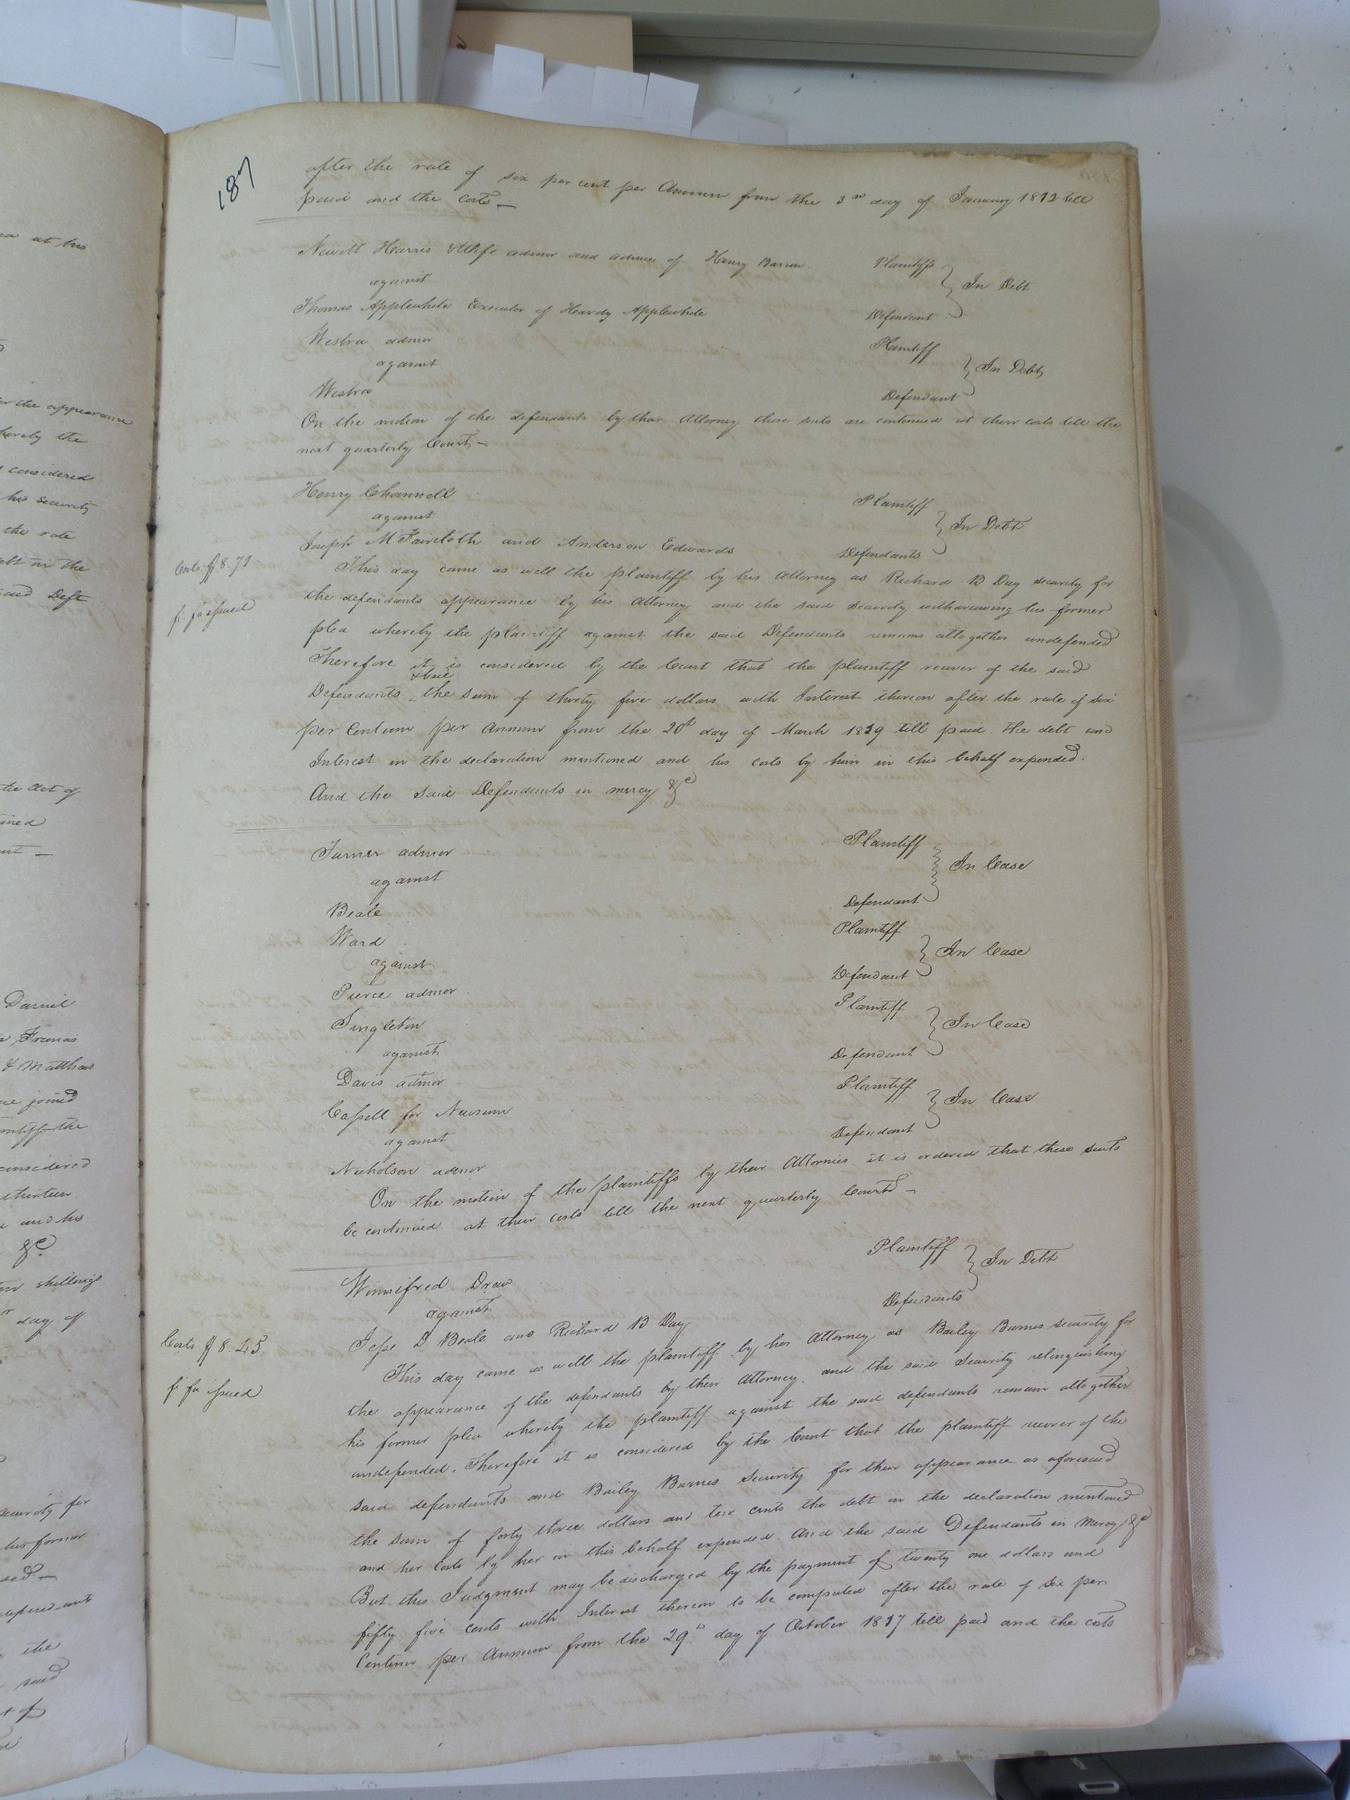 187
after the rate of six per cent per Annum from the 3rd day of January 1812 till
paid and the costs —
Newitt Harris & Wife admor and admx of Henry Barron Plaintiffs
against In Debt
Thomas Applewhite Executor of Hardy Applewhite Defendant
Westra admor Plaintiff
against In Debt
Westra Defendant
On the motion of the defendants by their Attorney these suits are continued at their costs till the
next quarterly Court —
Henry Channell Plaintiff
against In Debt
Joseph M Faircloth and Anderson Edwards Defendants
Costs $8.71
fi fa issued
This day came as well the plaintiff by his Attorney as Richard B Day security for
the defendants appearance by his Attorney and the said security withdrawing his former
plea whereby the plaintiff against the said Defendants remains altogether undefended
Therefore it is considered by the Court that the plaintiff recover of the said
Defendants the sum of thirty five dollars with Interest thereon after the rate of six
per Centum per Annum from the 20th day of March 1819 till paid The debt and
Interest in the declaration mentioned and his costs by him in this behalf expended.
And the said Defendants in mercy &c
Turner admor Plaintiff
against In Case
Beale Defendant
Ward Plaintiff
against In Case
Pierce admor Defendant
Singleton Plaintiff
against In Case
Davis admor Defendant
Cassell for Newsum Plaintiff
against In Case
Nicholson admor Defendant
On the motion of the plaintiffs by their Attornies it is ordered that these suits
be continued at their costs till the next quarterly Court —
Winnefred Drew Plaintiff
against In Debt
Jesse D Beale and Richard B Day Defendants
Costs $8.45
fi fa issued
This day came as well the plaintiff by her Attorney as Bailey Barnes security for
the appearance of the defendants by their Attorney. and the said Security relinquishing
his former plea whereby the plaintiff against the said defendants remain altogether
undefended. Therefore it is considered by the Court that the plaintiff recover of the
said defendants and Bailey Barnes Security for their appearance as aforesaid
the sum of forty three dollars and ten cents the debt in the declaration mentioned
and her Costs by her in this behalf expended And the said Defendants in Mercy &c
But this Judgment may be discharged by the payment of twenty one dollars and
fifty five cents with Interest thereon to be computed after the rate of six per
Centum per Annum from the 29th day of October 1817 till paid and the costs